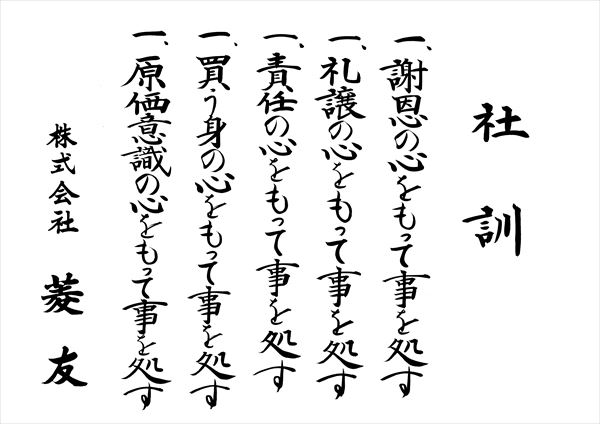 社訓
一、謝恩の心をもって事を処す
一、礼譲の心をもって事を処す
一、責任の心をもって事を処す
一、買う身の心をもって事を処す
一、原価意識の心をもって事を処す
株式会社 菱友